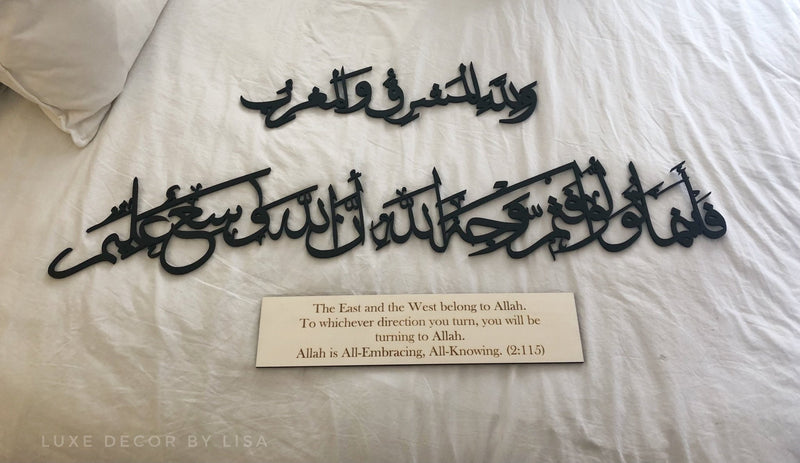 ولله المشرق والمغرب
فأينما تولوا فثم وجه الله إن الله واسع عليم
The East and the West belong to Allah.
To whichever direction you turn, you will be
turning to Allah.
Allah is All-Embracing, All-Knowing. (2:115)
LUXE DÉCOR BY LISA